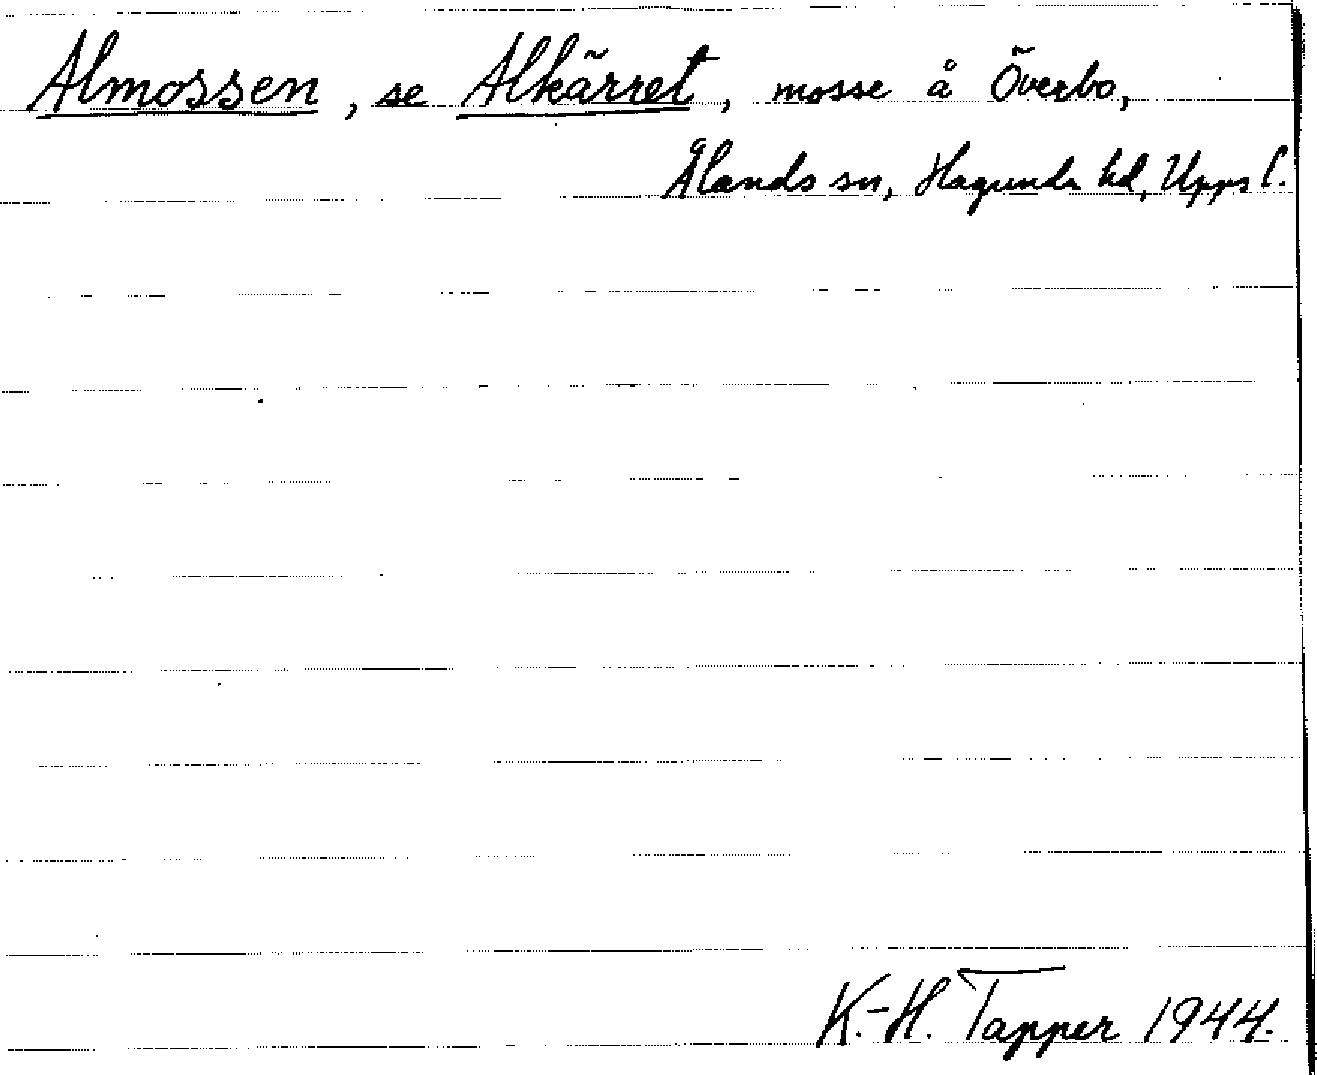 Almossen, se Alkärret, mosse å Överbo,
Ålands sn, Hagunda hd, Upps l.
K.-H. Tapper 1944.